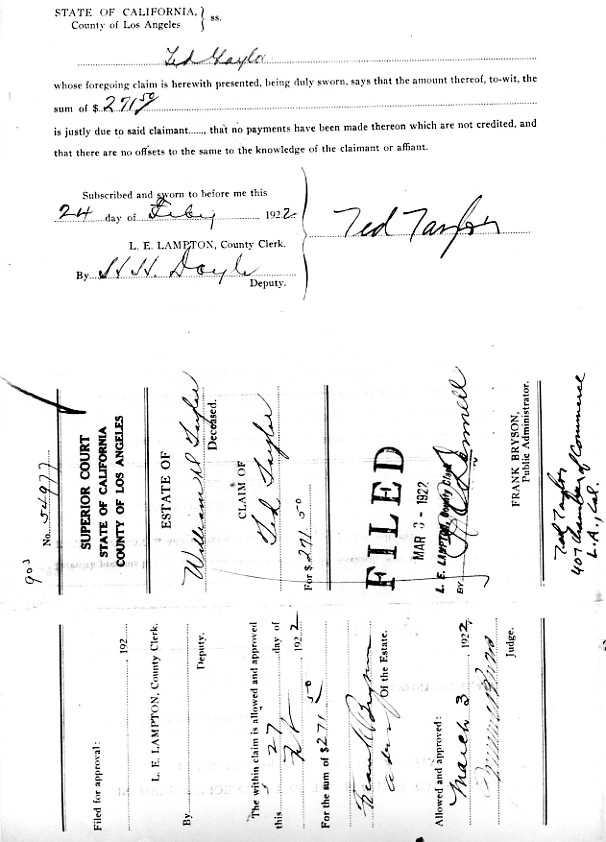 STATE OF CALIFORNIA,
County of Los Angeles
} ss.
Ted Taylor
whose foregoing claim is herewith presented, being duly sworn, says that the amount thereof, to-wit, the
sum of $ 271 50
is justly due to said claimant......, that no payments have been made thereon which are not credited, and
that there are no offsets to the same to the knowledge of the claimant or affiant.
Subscribed and sworn to before me this
24 day of Feby 1922
L. E. LAMPTON, County Clerk.
By H H Doyle
Deputy.
Ted Taylor
903
No. 54977
SUPERIOR COURT
STATE OF CALIFORNIA
COUNTY OF LOS ANGELES
ESTATE OF
William D Taylor
Deceased.
CLAIM OF
Ted Taylor
For $ 271.50
FILED
MAR 3 - 1922
L. E. LAMPTON, County Clerk
BY
FRANK BRYSON,
Public Administrator.
Ted Taylor
407 Chamber of Commerce
L.A., Cal.
Filed for approval:
192
L. E. LAMPTON, County Clerk.
By
Deputy.
The within claim is allowed and approved
this 27 day of
1922
For the sum of $ 271 50
Frank Bryson
Of the Estate.
Allowed and approved:
March 3 1922
Judge.